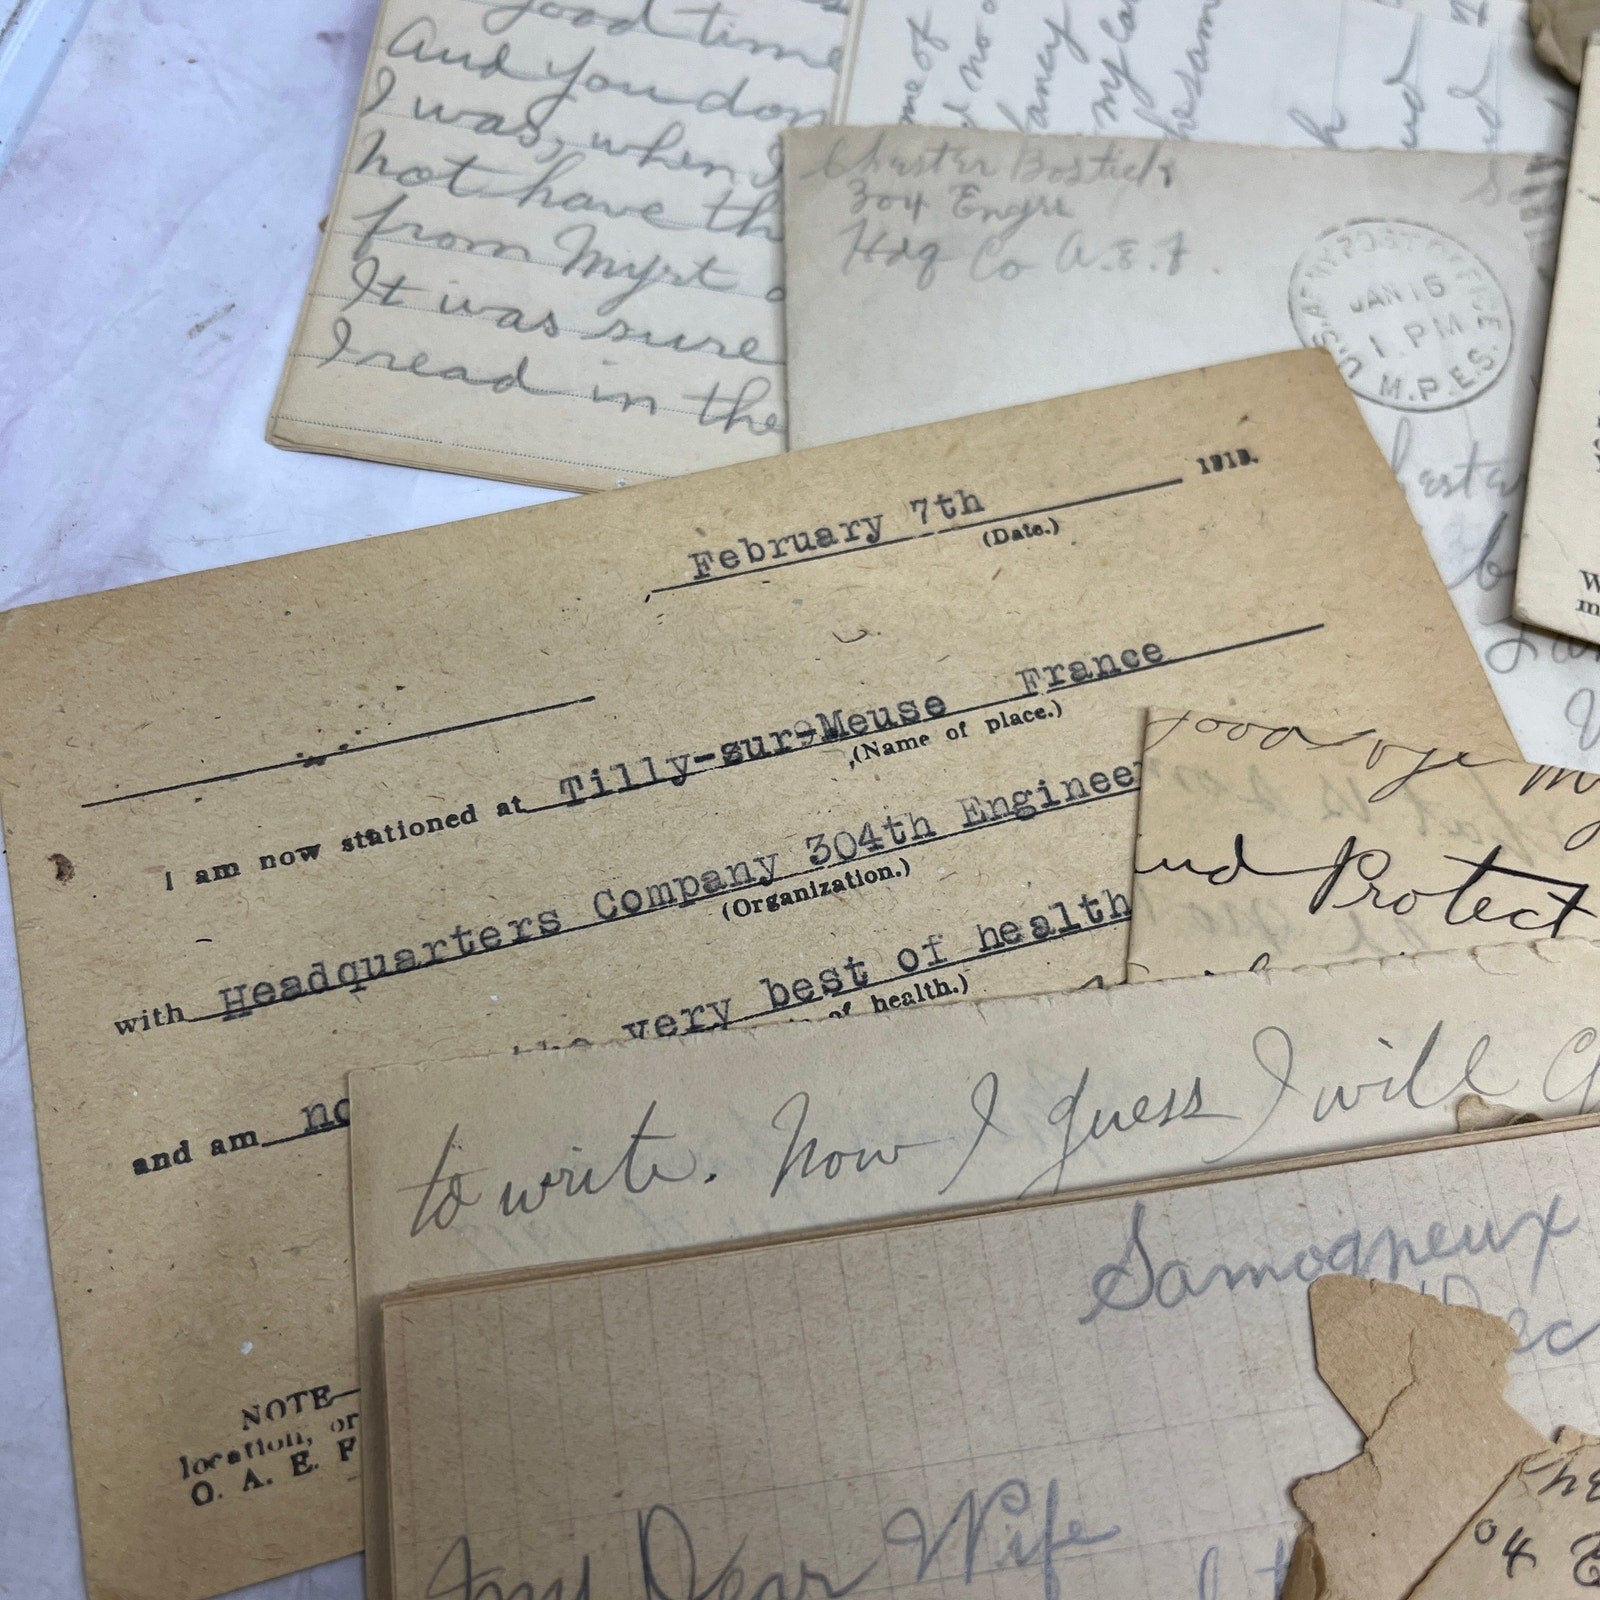 good time
And you don
I was, when I
not have th
from Myrt
It was sure
I read in the
me of
fancy
my
he sam
Chester Bostick
304 Engrs
Hdq Co A.E.F.
U.S. ARMY POST OFFICE
JAN 16
1 PM
M.P.E.S.
February 7th 1919.
(Date.)
I am now stationed at Tilly-sur-Meuse France
(Name of place.)
with Headquarters Company 304th Enginee
(Organization.)
the very best of health
of health.)
and am no
NOTE—
location, or
O. A. E. F
W
m
good bye
and Protect
to write. Now I guess I will
Samogneux
Dec
My Dear Wife
04 E